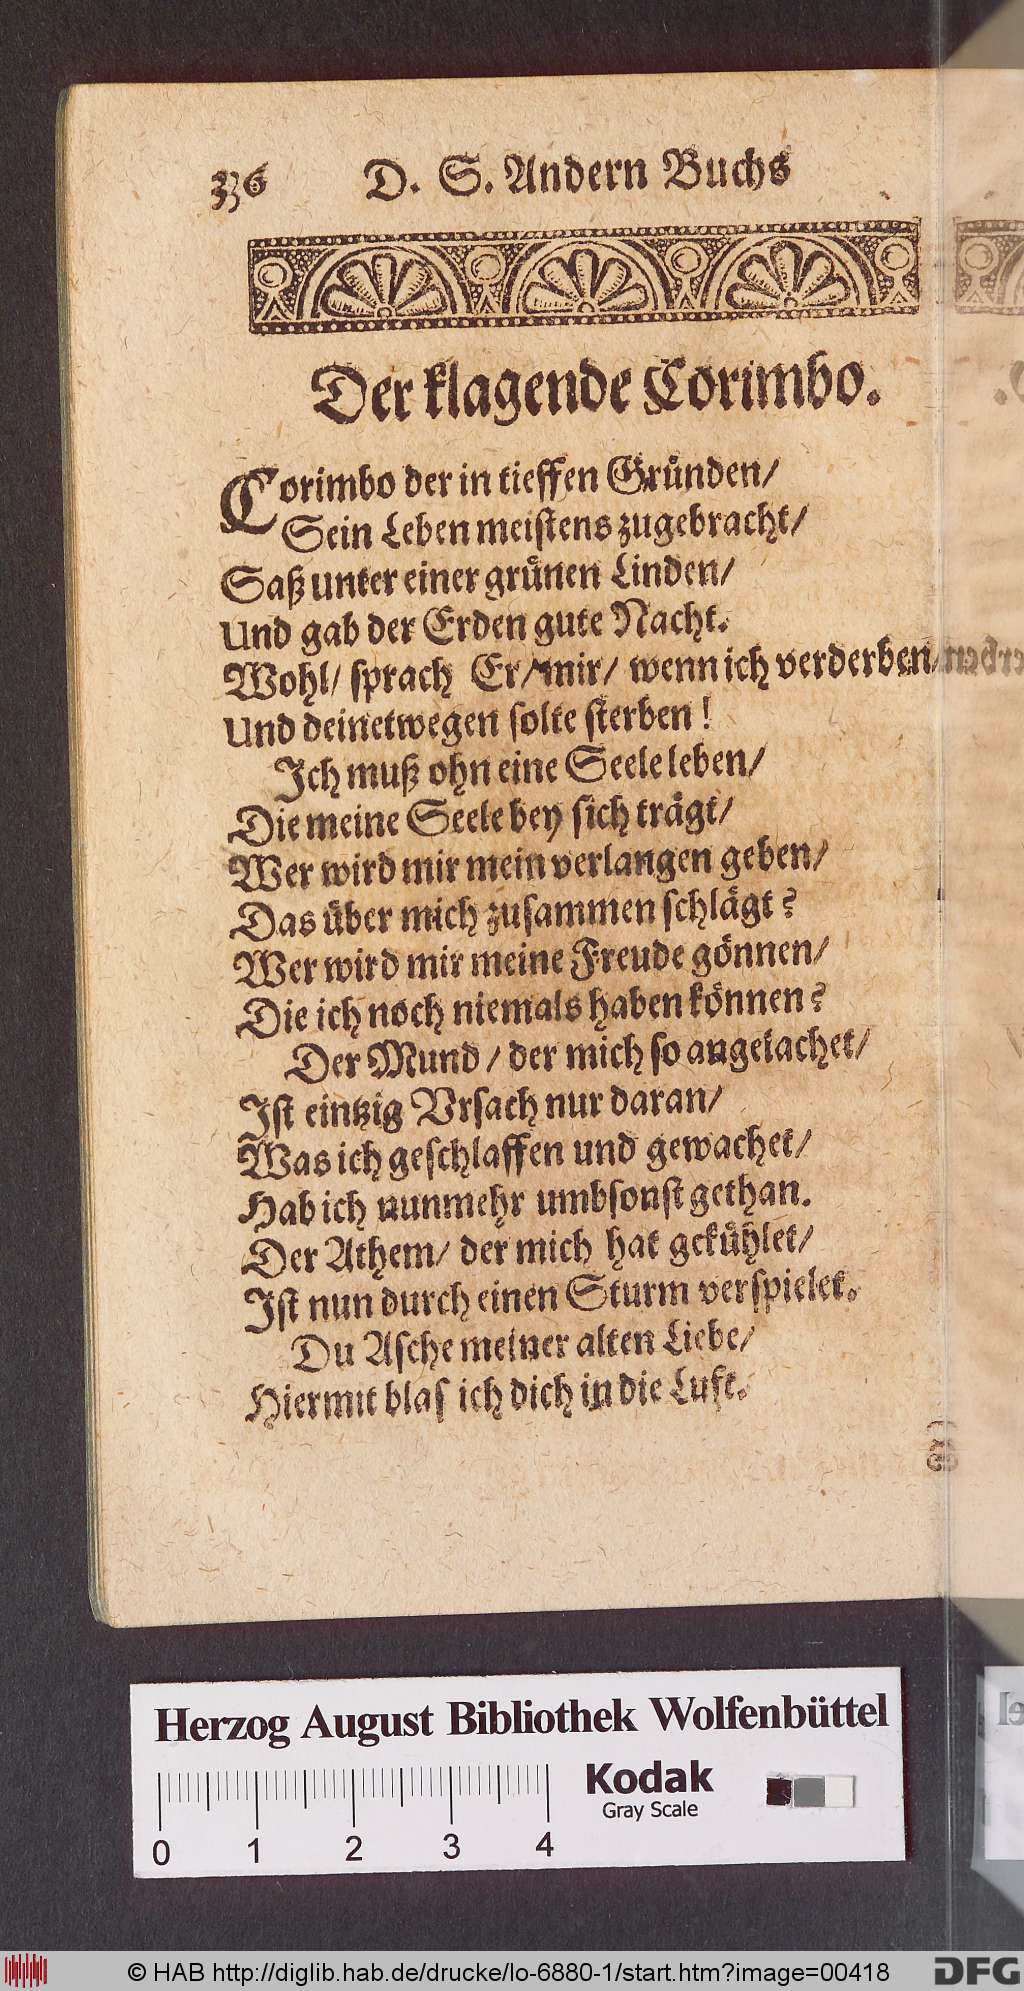 336 D. S. Andern Buchs
Der klagende Corimbo.
Corimbo der in tieffen Gruͤnden/
Sein Leben meistens zugebracht/
Saß unter einer gruͤnen Linden/
Und gab der Erden gute Nacht.
Wohl/ sprach Er/ mir/ wenn ich verderben/
Und deinetwegen solte sterben!
Ich muß ohn eine Seele leben/
Die meine Seele bey sich traͤgt/
Wer wird mir mein verlangen geben/
Das uͤber mich zusammen schlaͤgt?
Wer wird mir meine Freude goͤnnen/
Die ich noch niemals haben koͤnnen?
Der Mund/ der mich so angelachet/
Ist eintzig Vrsach nur daran/
Was ich geschlaffen und gewachet/
Hab ich nunmehr umbsonst gethan.
Der Athem/ der mich hat gekuͤhlet/
Ist nun durch einen Sturm verspielet.
Du Asche meiner alten Liebe/
Hiermit blas ich dich in die Luft.
Herzog August Bibliothek Wolfenbüttel
Kodak
Gray Scale
0 1 2 3 4
© HAB http://diglib.hab.de/drucke/lo-6880-1/start.htm?image=00418
DFG